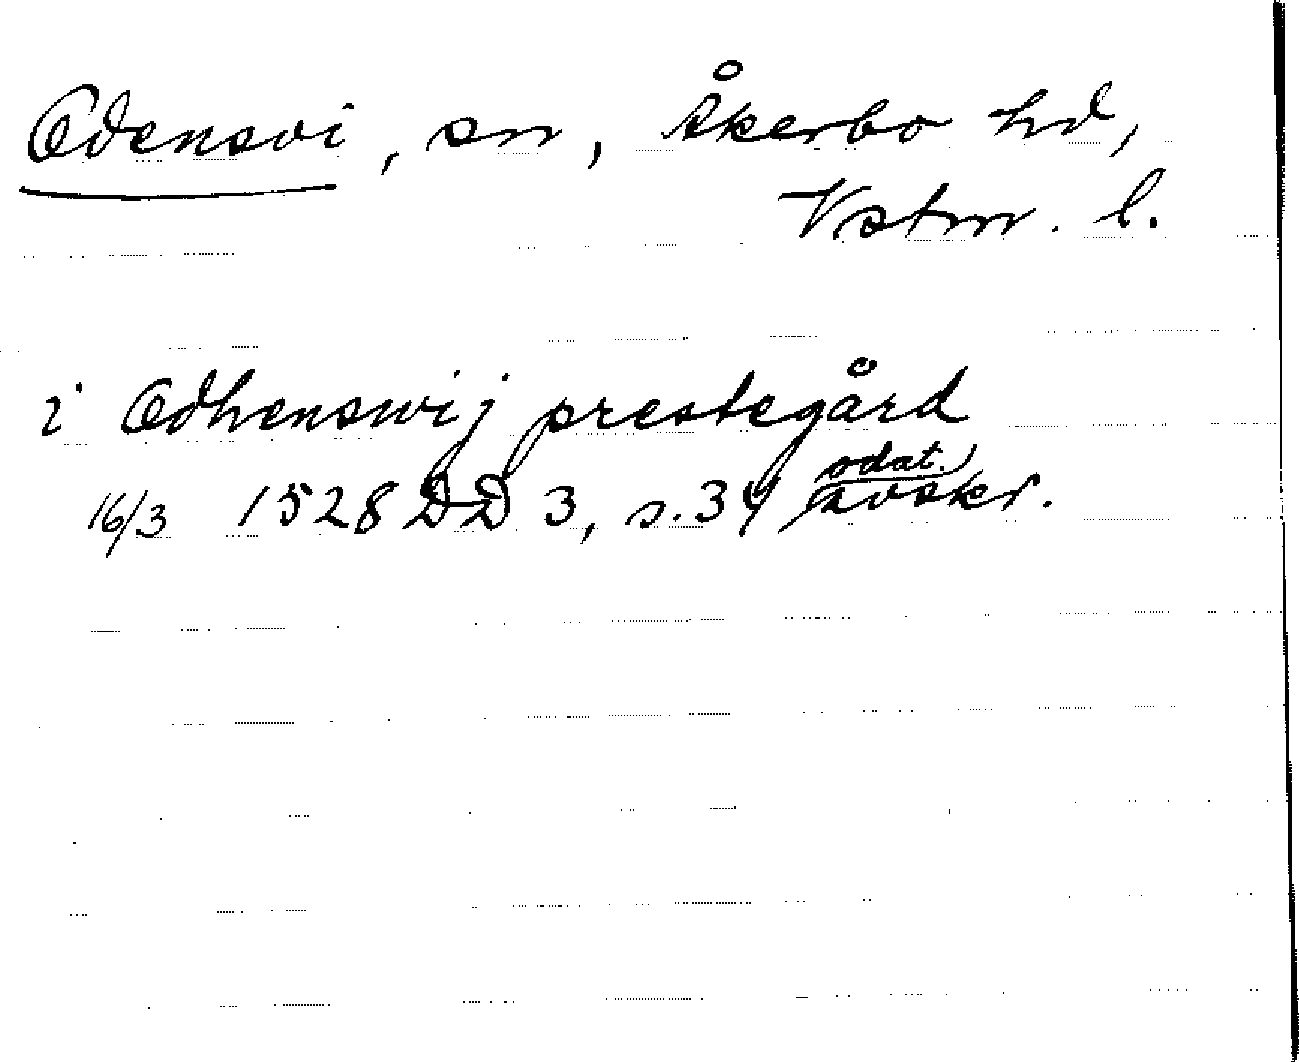 Odensvi, sn, Åkerbo hd,
Vstm. l.
i Odhenswij prestegård
16/3 1528 DD 3, s. 34 odat. avskr.